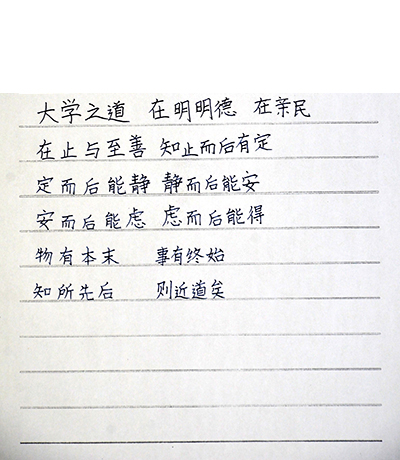 大学之道 在明明德 在亲民
在止与至善 知止而后有定
定而后能静 静而后能安
安而后能虑 虑而后能得
物有本末 事有终始
知所先后 则近道矣